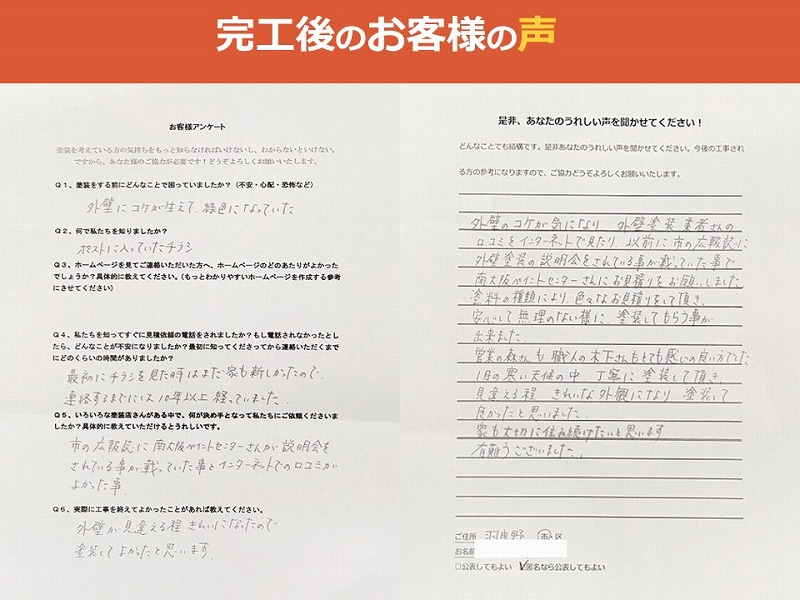 完工後のお客様の声
お客様アンケート
塗装を考えている方の気持ちをもっと知らなければいけないし、わからないといけない。
ですから、あなた様のご協力が必要です！どうぞよろしくお願いいたします。
Q1、塗装をする前にどんなことで困っていましたか？（不安・心配・恐怖など）
外壁にコケが生えて、緑色になっていた
Q2、何で私たちを知りましたか？
ポストに入っていたチラシ
Q3、ホームページを見てご連絡いただいた方へ、ホームページのどのあたりがよかった
でしょうか？具体的に教えてください。（もっとわかりやすいホームページを作成する参考
にさせてください）
Q4、私たちを知ってすぐに見積依頼の電話をされましたか？もし電話されなかったとし
たら、どんなことが不安になりましたか？最初に知ってくださってから連絡いただくまで
にどのくらいの時間がありましたか？
最初にチラシを見た時はまだ家も新しかったので、
連絡するまでには10年以上経っていました。
Q5、いろいろな塗装店さんがある中で、何が決め手となって私たちにご依頼くださいま
したか？具体的に教えていただけるとうれしいです。
市の広報誌に南大阪ペイントセンターさんが説明会を
されている事が載っていた事とインターネットでの口コミが
よかった事
Q6、実際に工事を終えてよかったことがあれば教えてください。
外壁が見違える程きれいになったので
塗装してよかったと思います
是非、あなたのうれしい声を聞かせてください！
どんなことでも結構です。是非あなたのうれしい声を聞かせてください。今後の工事され
る方の参考になりますので、ご協力どうぞよろしくお願いいたします。
外壁のコケが気になり 外壁塗装業者さんの
口コミをインターネットで見たり、以前に市の広報誌に
外壁塗装の説明会をされている事が載っていた事で
南大阪ペイントセンターさんにお見積りをお願いしました
塗料の種類により、色々なお見積りをして頂き、
安心して無理のない様に、塗装してもらう事が
出来ました。
営業の森さんも職人の木下さんもとても感じの良い方でした
1月の寒い天候の中、丁寧に塗装して頂き、
見違える程 きれいな外観になり 塗装して
良かったと思いました。
家も大切に住み続けたいと思います
有難うございました。
ご住所 羽曳野 市・区
お名前
□公表してもよい ☑匿名なら公表してもよい